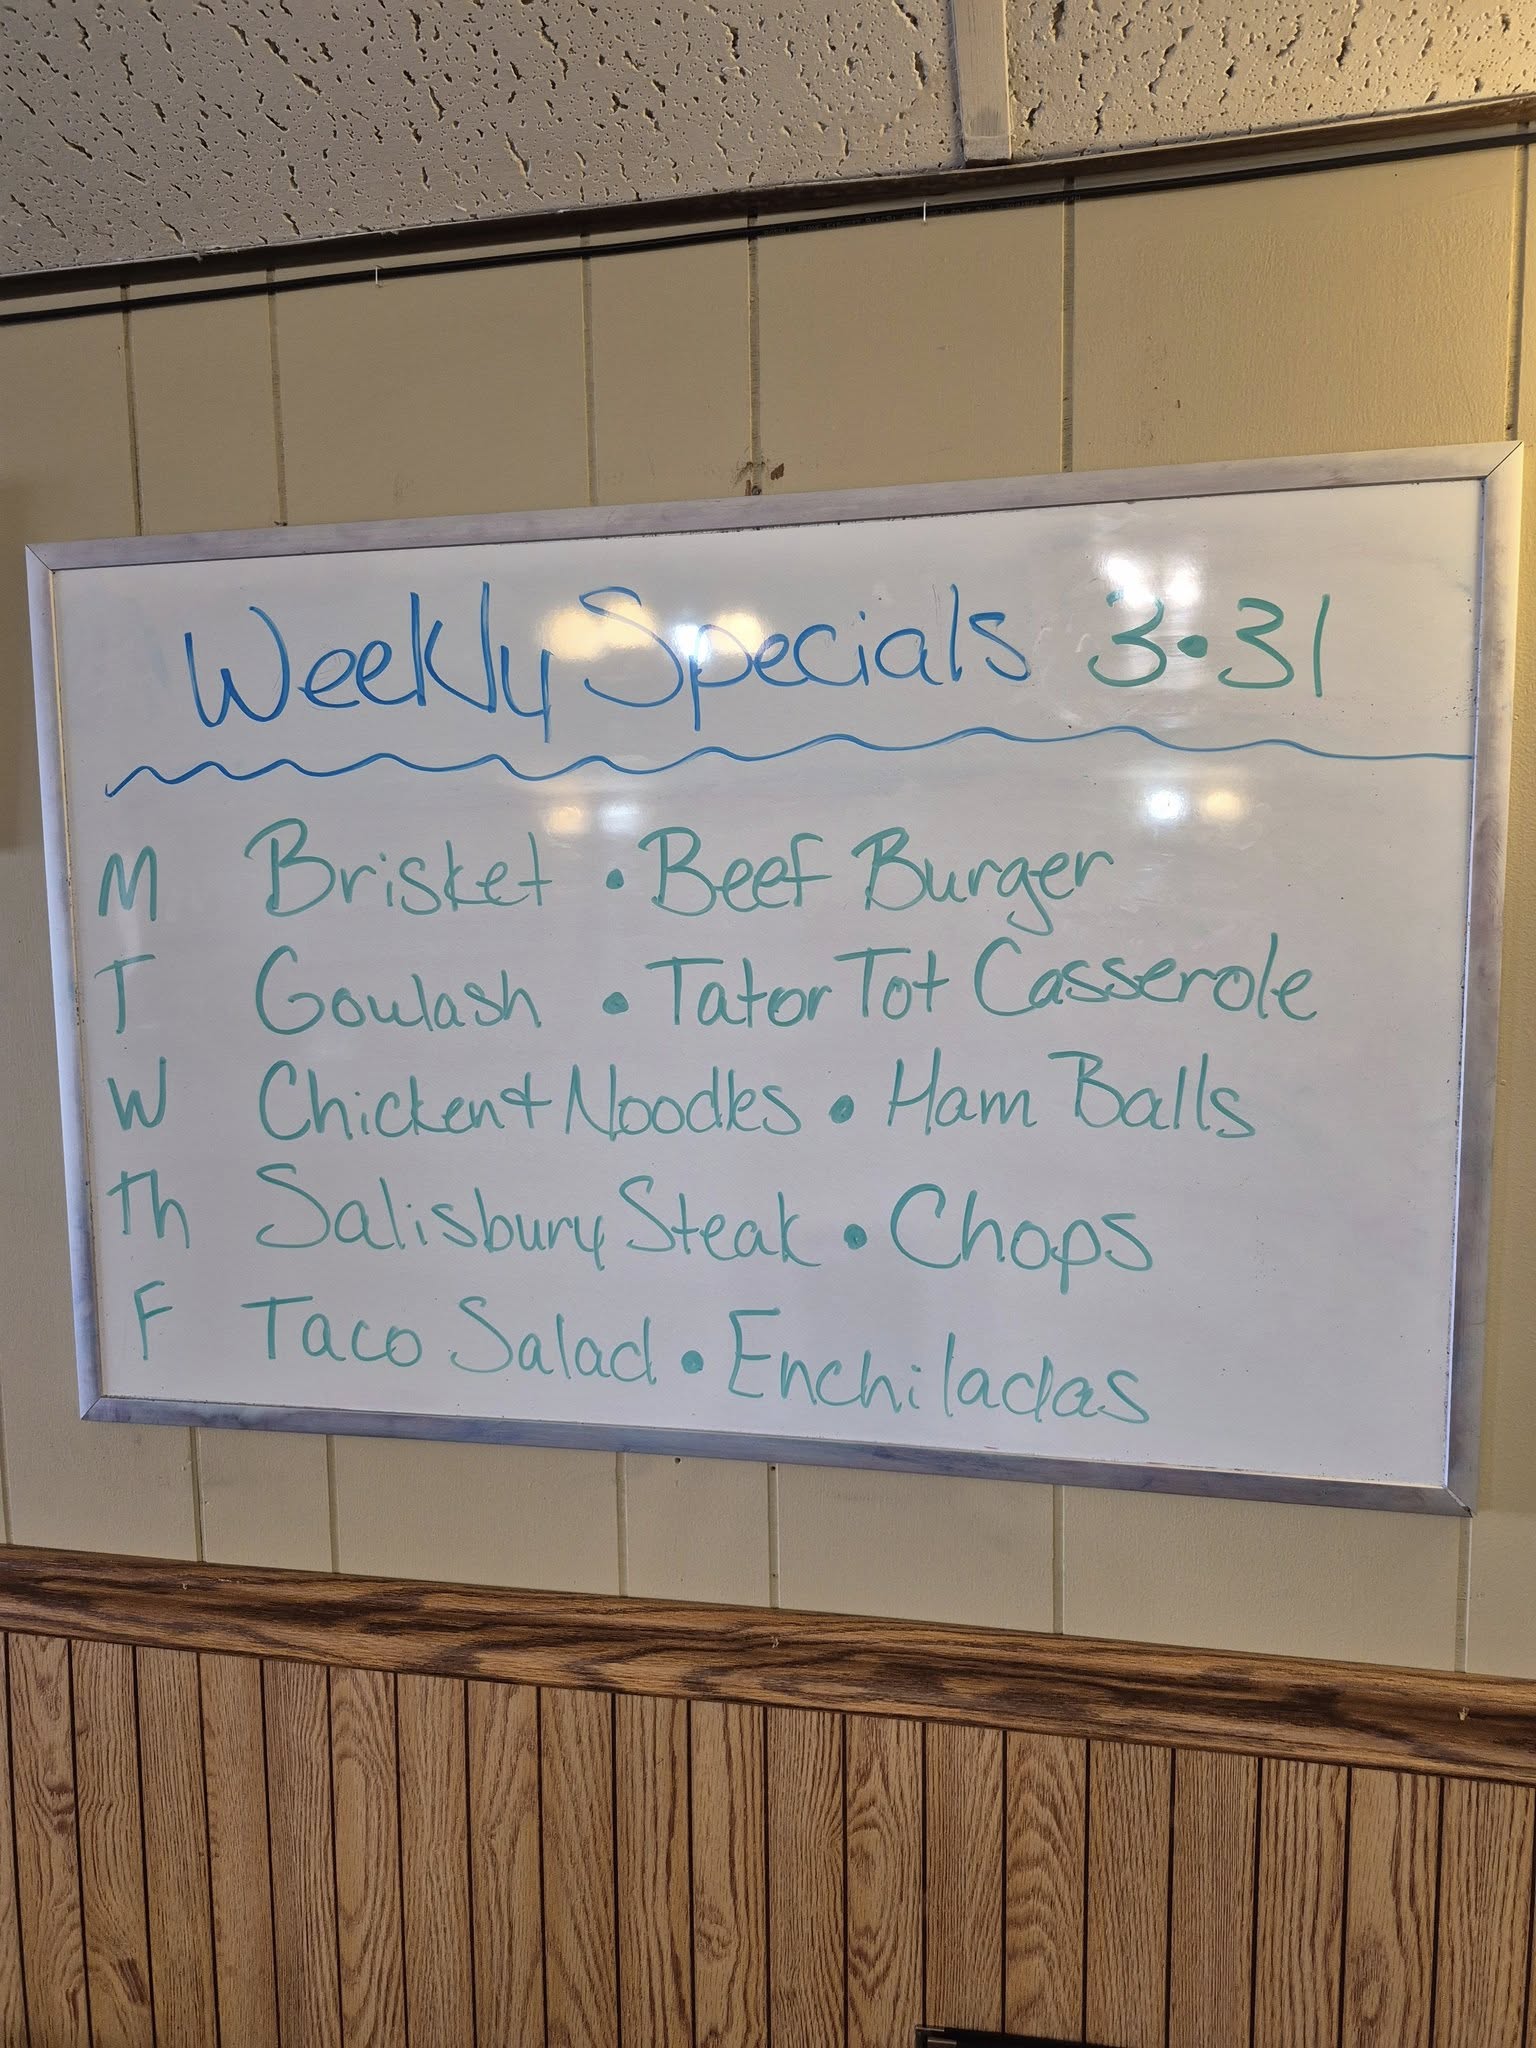 Weekly Specials 3•31
M Brisket • Beef Burger
T Goulash • Tator Tot Casserole
W Chicken & Noodles • Ham Balls
Th Salisbury Steak • Chops
F Taco Salad • Enchiladas